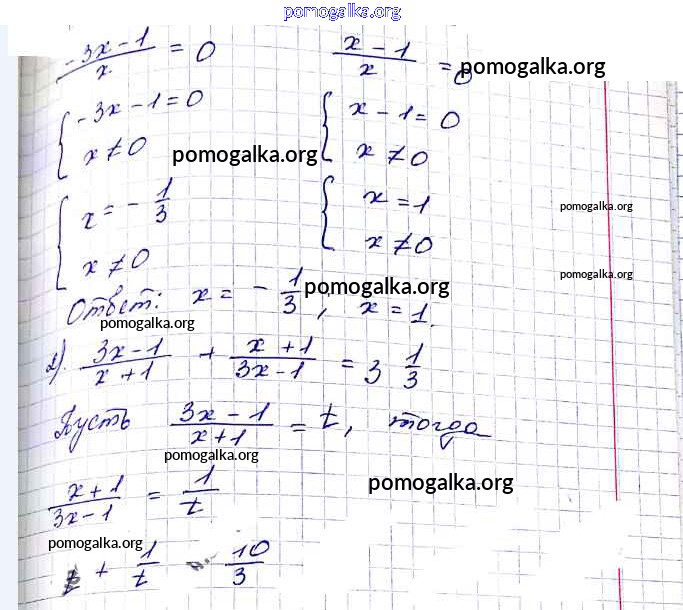 pomogalka.org
(-3x-1)/x = 0    (x-1)/x = 0 pomogalka.org
{ -3x-1=0    { x-1=0
x≠0 pomogalka.org x≠0
{ x = -1/3    { x=1 pomogalka.org
x≠0    x≠0
pomogalka.org
Ответ: x = -1/3, x=1. pomogalka.org
pomogalka.org
2). (3x-1)/(x+1) + (x+1)/(3x-1) = 3 1/3
Пусть (3x-1)/(x+1) = t, тогда
pomogalka.org
(x+1)/(3x-1) = 1/t pomogalka.org
pomogalka.org
t + 1/t = 10/3